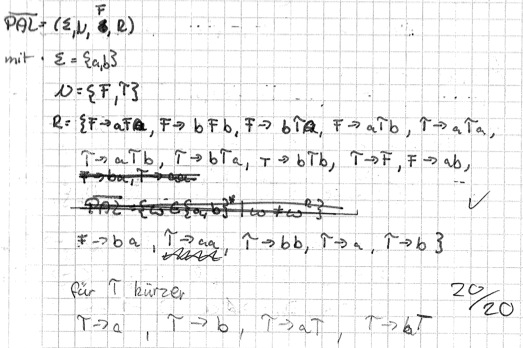 F
P̅A̅L̅ = (Σ, N, R)
mit Σ = {a,b}
N = {F, T}
R = {F → aFa, F → bFb, F → bTa, F → aTb, T → aTa,
T → aTb, T → bTa, T → bTb, T → F, F → ab,
F → ba, T → aa
P̅A̅L̅ = {w ∈ {a,b}* | w ≠ wᴿ}
F → ba, T → aa, T → bb, T → a, T → b }
für T kürzer 20/20
T → a , T → b , T → aT , T → bT